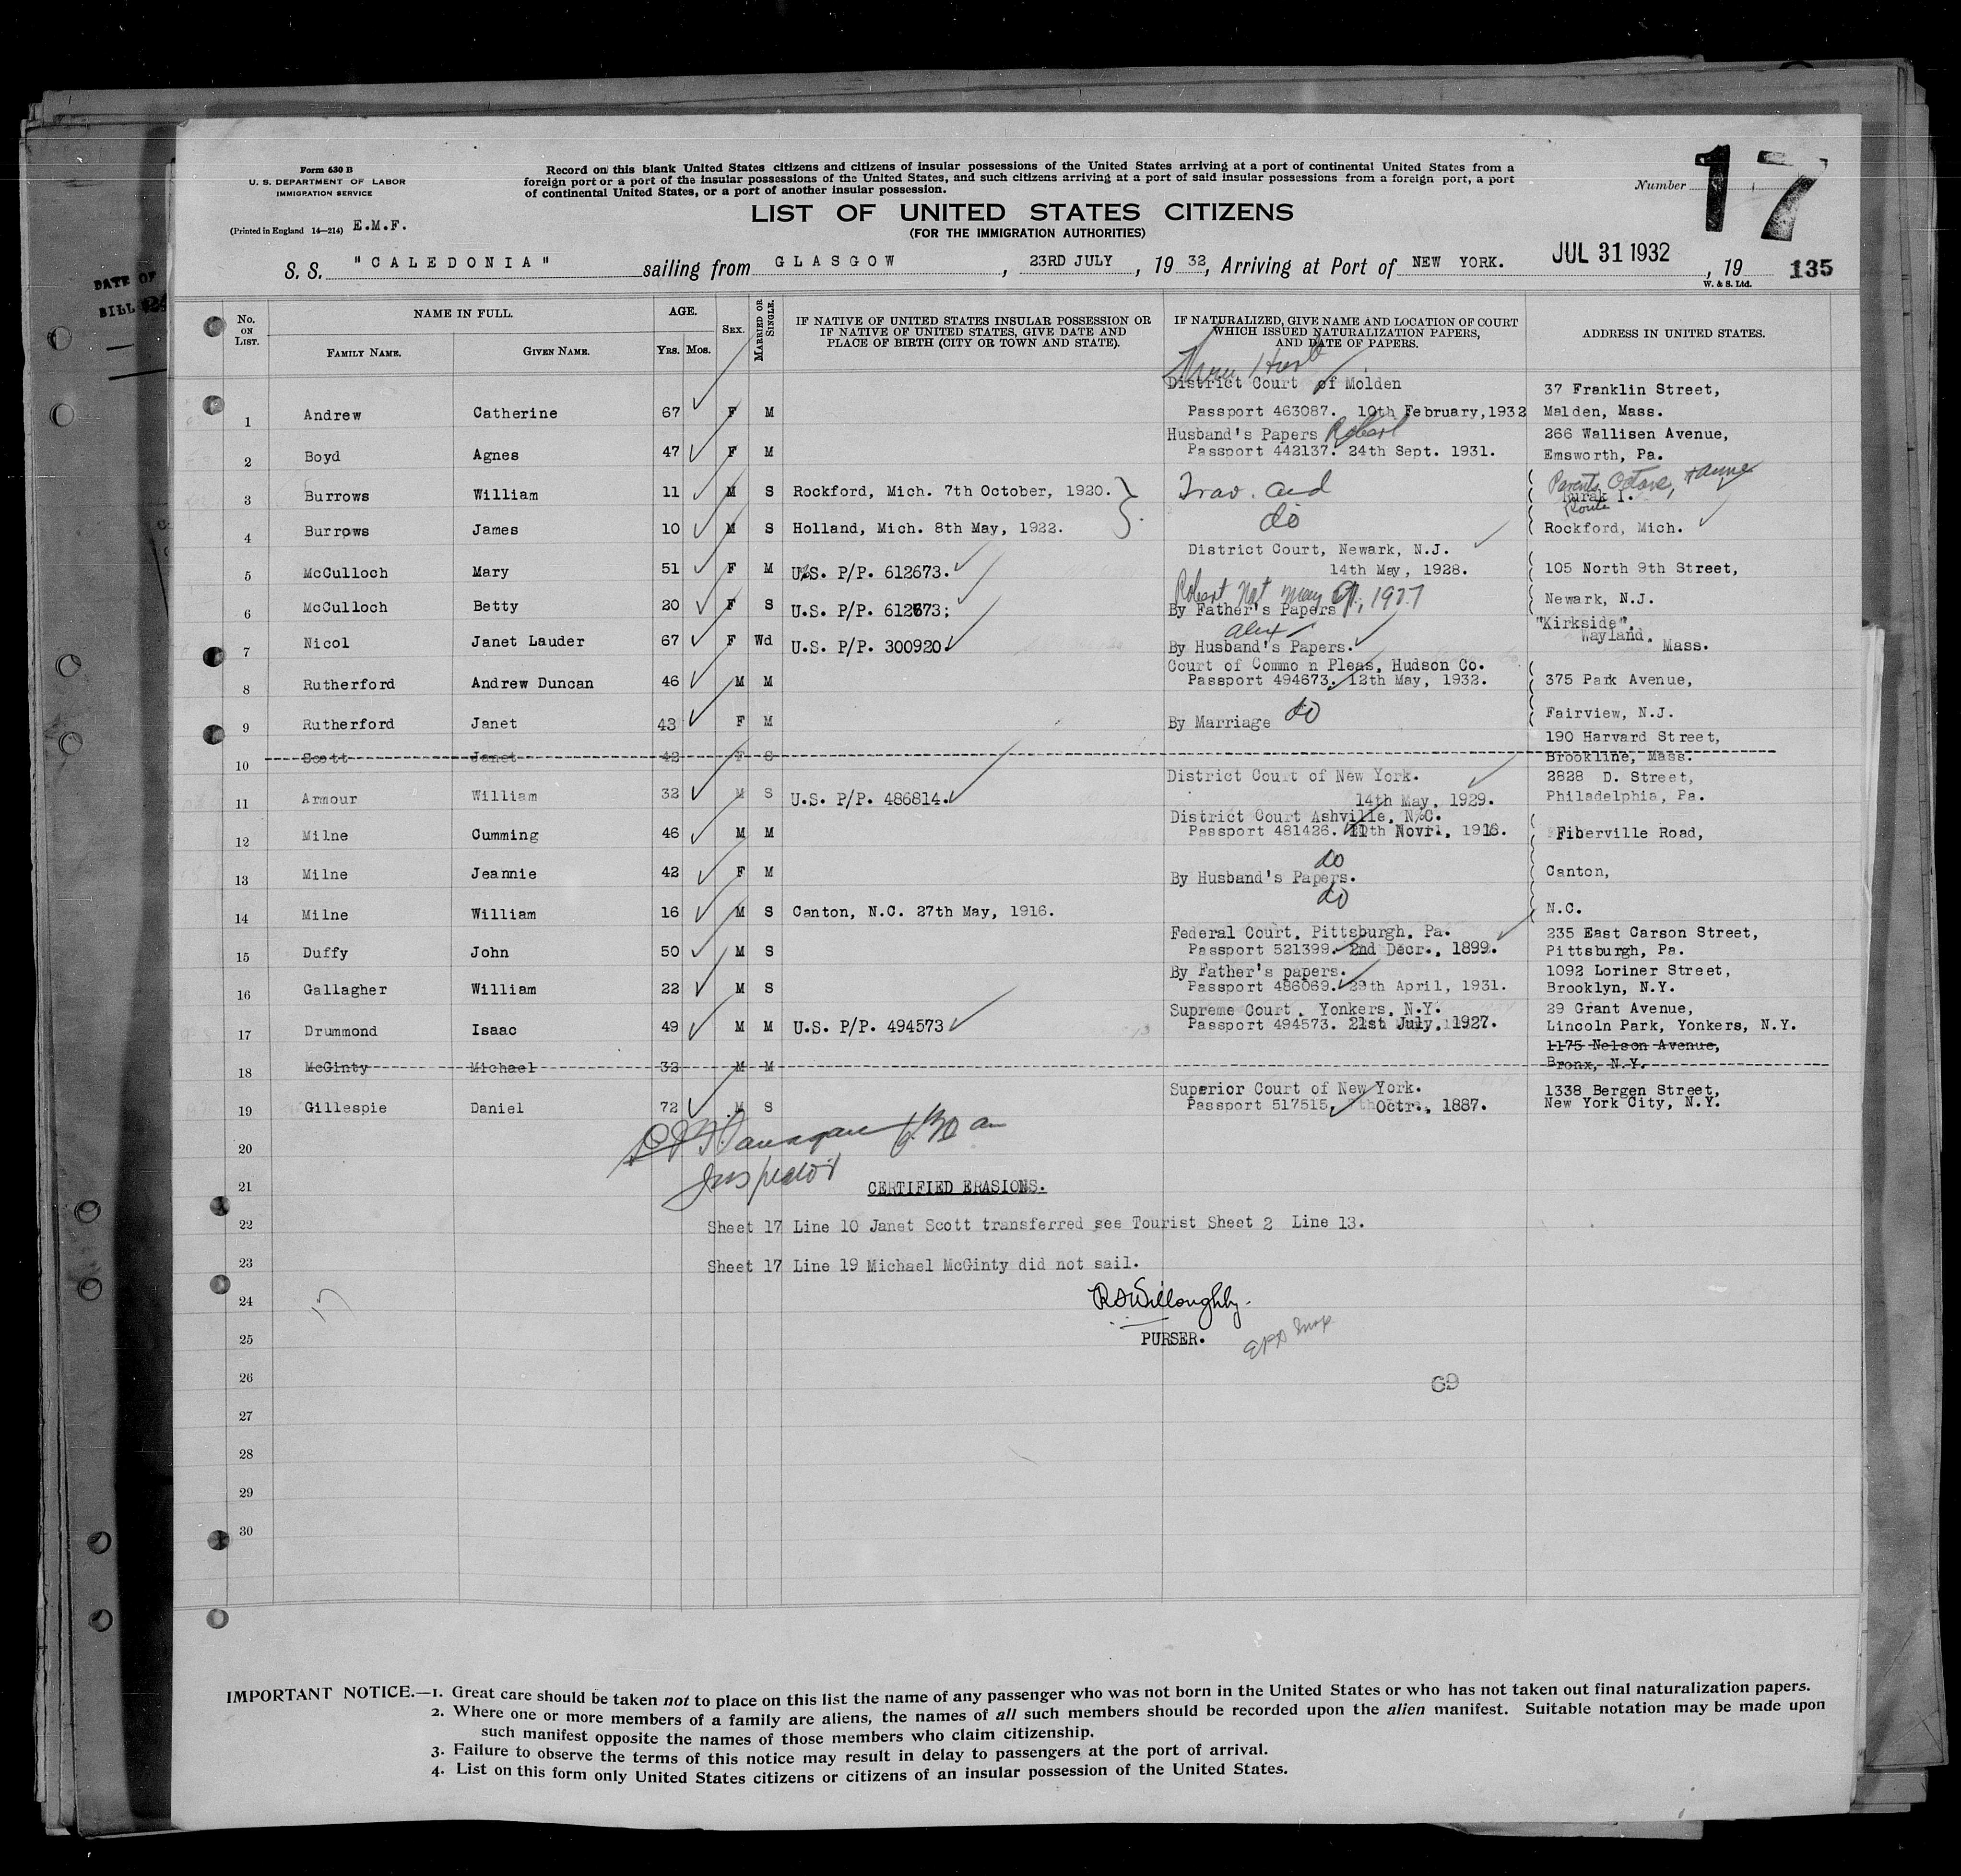 DATE OF
BILL
Form 630 B
U. S. DEPARTMENT OF LABOR
IMMIGRATION SERVICE
(Printed in England 14—214) E.M.F.
Record on this blank United States citizens and citizens of insular possessions of the United States arriving at a port of continental United States from a
foreign port or a port of the insular possessions of the United States, and such citizens arriving at a port of said insular possessions from a foreign port, a port
of continental United States, or a port of another insular possession.
Number 17
LIST OF UNITED STATES CITIZENS
(FOR THE IMMIGRATION AUTHORITIES)
S. S. "CALEDONIA" sailing from GLASGOW, 23RD JULY, 19 32, Arriving at Port of NEW YORK. JUL 31 1932, 19 135
W. & S. Ltd.
No. ON LIST. NAME IN FULL. AGE. SEX. MARRIED OR SINGLE. IF NATIVE OF UNITED STATES INSULAR POSSESSION OR IF NATIVE OF UNITED STATES, GIVE DATE AND PLACE OF BIRTH (CITY OR TOWN AND STATE). IF NATURALIZED, GIVE NAME AND LOCATION OF COURT WHICH ISSUED NATURALIZATION PAPERS, AND DATE OF PAPERS. ADDRESS IN UNITED STATES.
FAMILY NAME. GIVEN NAME. YRS. MOS.
Thru Husb
District Court of Molden 37 Franklin Street,
1 Andrew Catherine 67 F M Passport 463087. 10th February,1932 Malden, Mass.
Husband's Papers Robert 266 Wallisen Avenue,
2 Boyd Agnes 47 F M Passport 442137. 24th Sept. 1931. Emsworth, Pa.
Parents Octave, + Anne
3 Burrows William 11 M S Rockford, Mich. 7th October, 1920. Trav. and Rurak 1.
Route
4 Burrows James 10 M S Holland, Mich. 8th May, 1922. do Rockford, Mich.
District Court, Newark, N.J.
5 McCulloch Mary 51 F M U.S. P/P. 612673. 14th May, 1928. 105 North 9th Street,
Robert Nat May
6 McCulloch Betty 20 F S U.S. P/P. 612673; By Father's Papers Newark, N.J.
Alex "Kirkside".
7 Nicol Janet Lauder 67 F Wd U.S. P/P. 300920. By Husband's Papers. Wayland. Mass.
Court of Commo n Pleas, Hudson Co.
8 Rutherford Andrew Duncan 46 M M Passport 494673. 12th May, 1932. 375 Park Avenue,
9 Rutherford Janet 43 F M By Marriage do Fairview, N.J.
190 Harvard Street,
10 Scott Janet 42 F S Brookline, Mass.
District Court of New York. 2828 D. Street,
11 Armour William 32 M S U.S. P/P. 486814. 14th May, 1929. Philadelphia, Pa.
District Court Ashville, N.C.
12 Milne Cumming 46 M M Passport 481426. Fiberville Road,
do
13 Milne Jeannie 42 F M By Husband's Papers. Canton,
do
14 Milne William 16 M S Canton, N.C. 27th May, 1916. N.C.
Federal Court, Pittsburgh, Pa. 235 East Carson Street,
15 Duffy John 50 M S Passport 521399. 2nd Decr., 1899. Pittsburgh, Pa.
By Father's papers. 1092 Loriner Street,
16 Gallagher William 22 M S Passport 486069. 29th April, 1931. Brooklyn, N.Y.
Supreme Court, Yonkers, N.Y. 29 Grant Avenue,
17 Drummond Isaac 49 M M U.S. P/P. 494573 Passport 494573. 21st July, 1927. Lincoln Park, Yonkers, N.Y.
1175 Nelson Avenue,
18 McGinty Michael 32 M M Bronx, N.Y.
Superior Court of New York. 1338 Bergen Street,
19 Gillespie Daniel 72 M S Passport 517515, Octr., 1887. New York City, N.Y.
20
Inspector
21 CERTIFIED ERASIONS.
22 Sheet 17 Line 10 Janet Scott transferred see Tourist Sheet 2 Line 13.
23 Sheet 17 Line 19 Michael McGinty did not sail.
24 R.S.Willoughby.
25 PURSER.
26 69
27
28
29
30
IMPORTANT NOTICE.—1. Great care should be taken not to place on this list the name of any passenger who was not born in the United States or who has not taken out final naturalization papers.
2. Where one or more members of a family are aliens, the names of all such members should be recorded upon the alien manifest. Suitable notation may be made upon
such manifest opposite the names of those members who claim citizenship.
3. Failure to observe the terms of this notice may result in delay to passengers at the port of arrival.
4. List on this form only United States citizens or citizens of an insular possession of the United States.